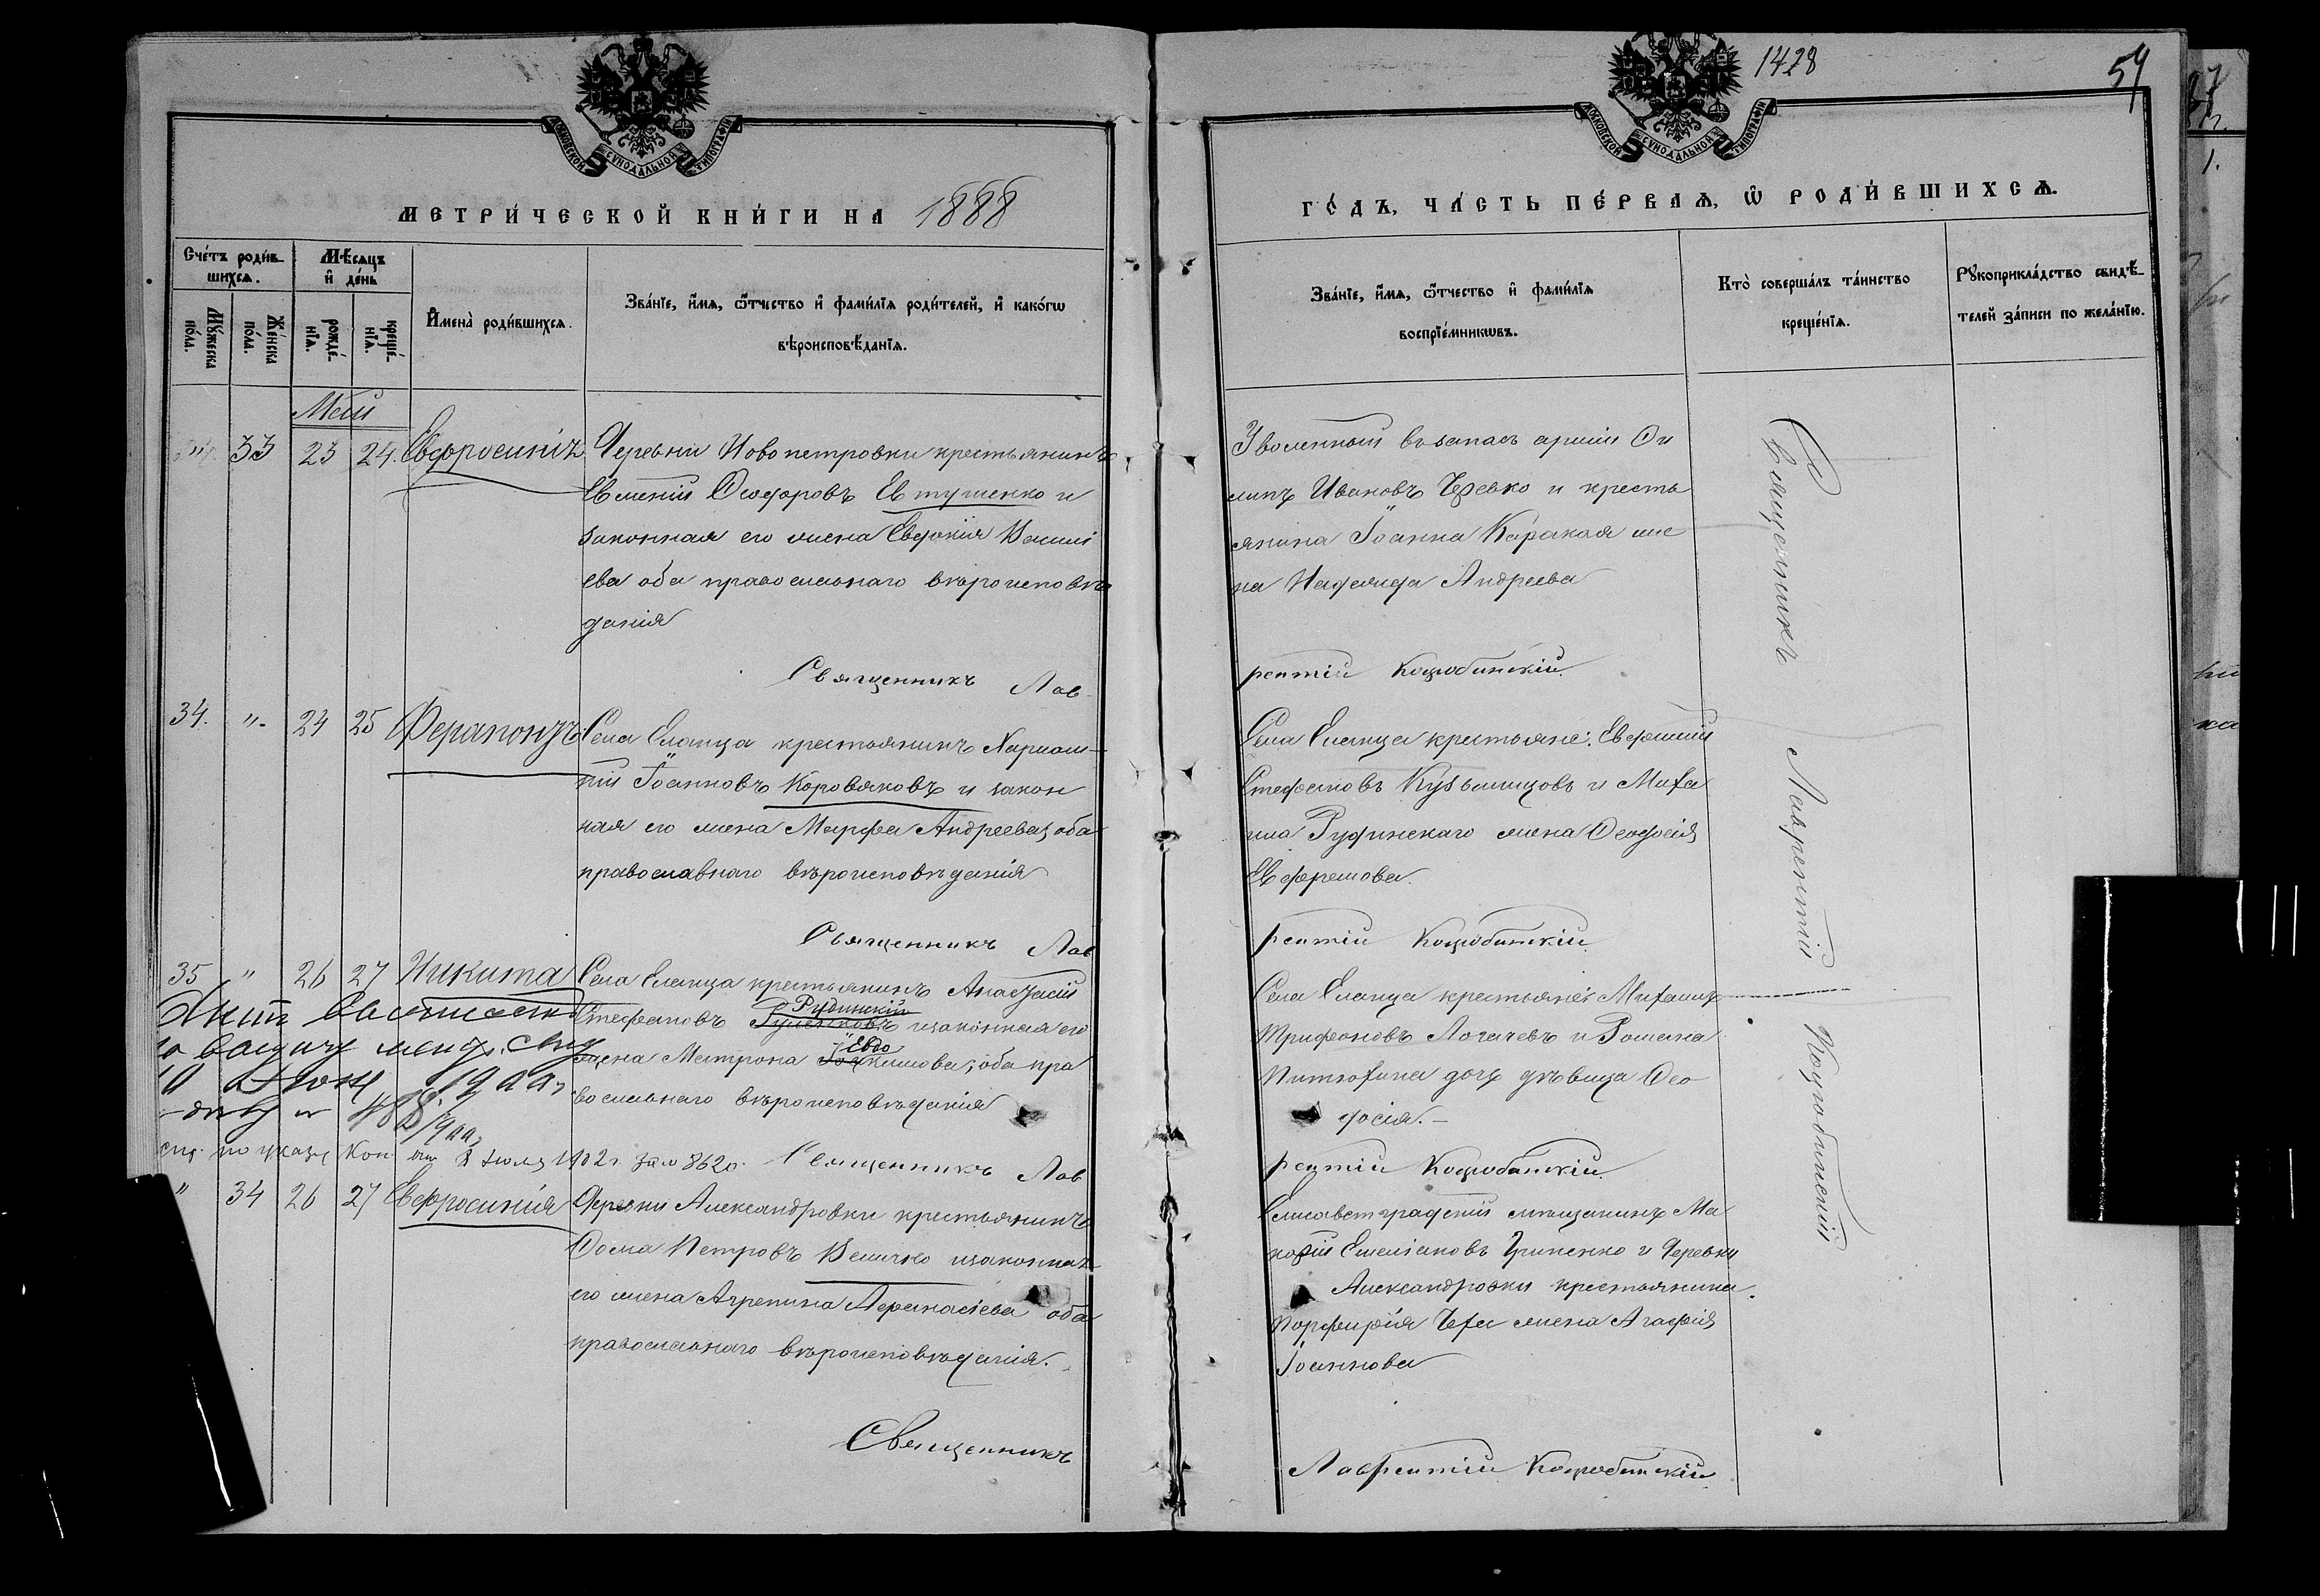 1428
59
МОСКОВСКОЙ СѴНОДАЛЬНОЙ ТИПОГРАФІИ
МОСКОВСКОЙ СѴНОДАЛЬНОЙ ТИПОГРАФІИ
МЕТРИ́ЧЕСКОЙ КНИ́ГИ НА 1888
ГО́ДЪ, ЧА́СТЬ ПЕ́РВАѦ, Ѡ РОДИ́ВШИХСѦ.
Сче́тъ роди́в-
шихсѧ.
Мꙋ́жеска по́ла.
Же́нска по́ла.
Мѣ́сѧцъ и де́нь
рожде́-
нїѧ.
креще́-
нїѧ.
И҆мена̀ роди́вшихсѧ.
Зва́нїе, и҆́мѧ, ѻ҆́тчество и҆ фами́лїѧ роди́телей, и҆ како́гѡ
вѣроисповѣ́данїѧ.
Зва́нїе, и҆́мѧ, ѻ҆́тчество и҆ фами́лїѧ
воспрїе́мникѡвъ.
Кто̀ соверша́лъ та́инство
креще́нїѧ.
Рꙋкоприкла́дство свидѣ́-
телей за́писи по жела́нїю.
Май
" 33 23 24. Евфросинія Деревни Новопетровки крестьянинъ
Евмений Ѳеодоровъ Евтушенко и
законная его жена Евдокія Васили
ева оба православнаго вѣроисповѣ
данія
Священникъ Лав
Уволенный въ запасъ арміи Фи
липъ Ивановъ Черевко и кресть
янина Іоанна Каракая же
на Надежда Андреева
рентій Коцюбинскій.
34. " 24 25 Ферапонтъ Села Еланца крестьянинъ Харлам-
пій Іоанновъ Коровяковъ и закон
ная его жена Марфа Андреева, оба
православнаго вѣроисповѣданія
Священникъ Лав
Села Еланца крестьяне: Евфимій
Стефановъ Кузьминцовъ и Миха
ила Рудинскаго жена Ѳеодосія
Ефремова.
рентій Коцюбинскій.
35 " 26 27 Никита Села Еланца крестьянинъ Анастасій
Стефановъ Рудинскій и законная его
жена Матрона Евдокимова, оба пра
вославнаго вѣроисповѣданія
488
1902 г. за № 8620. Священникъ Лав
Села Еланца крестьяне: Михаилъ
Трифоновъ Логачевъ и Романа
дочь дѣвица Ѳео
досія.-
рентій Коцюбинскій.
" 34 26 27 Евфросинія Деревни Александровки крестьянинъ
Ѳома Петровъ Величко и законная
его жена Агрепина Афанасіева оба
православнаго вѣроисповѣданія.
Священникъ
Елисаветградскій мѣщанинъ Ма
карій Емеліановъ Гриненко и деревни
Александровки крестьянина
Порфирія Чеха жена Агафія
Іоаннова
Лаврентій Коцюбинскій.
Священникъ Лаврентій Коцюбинскій